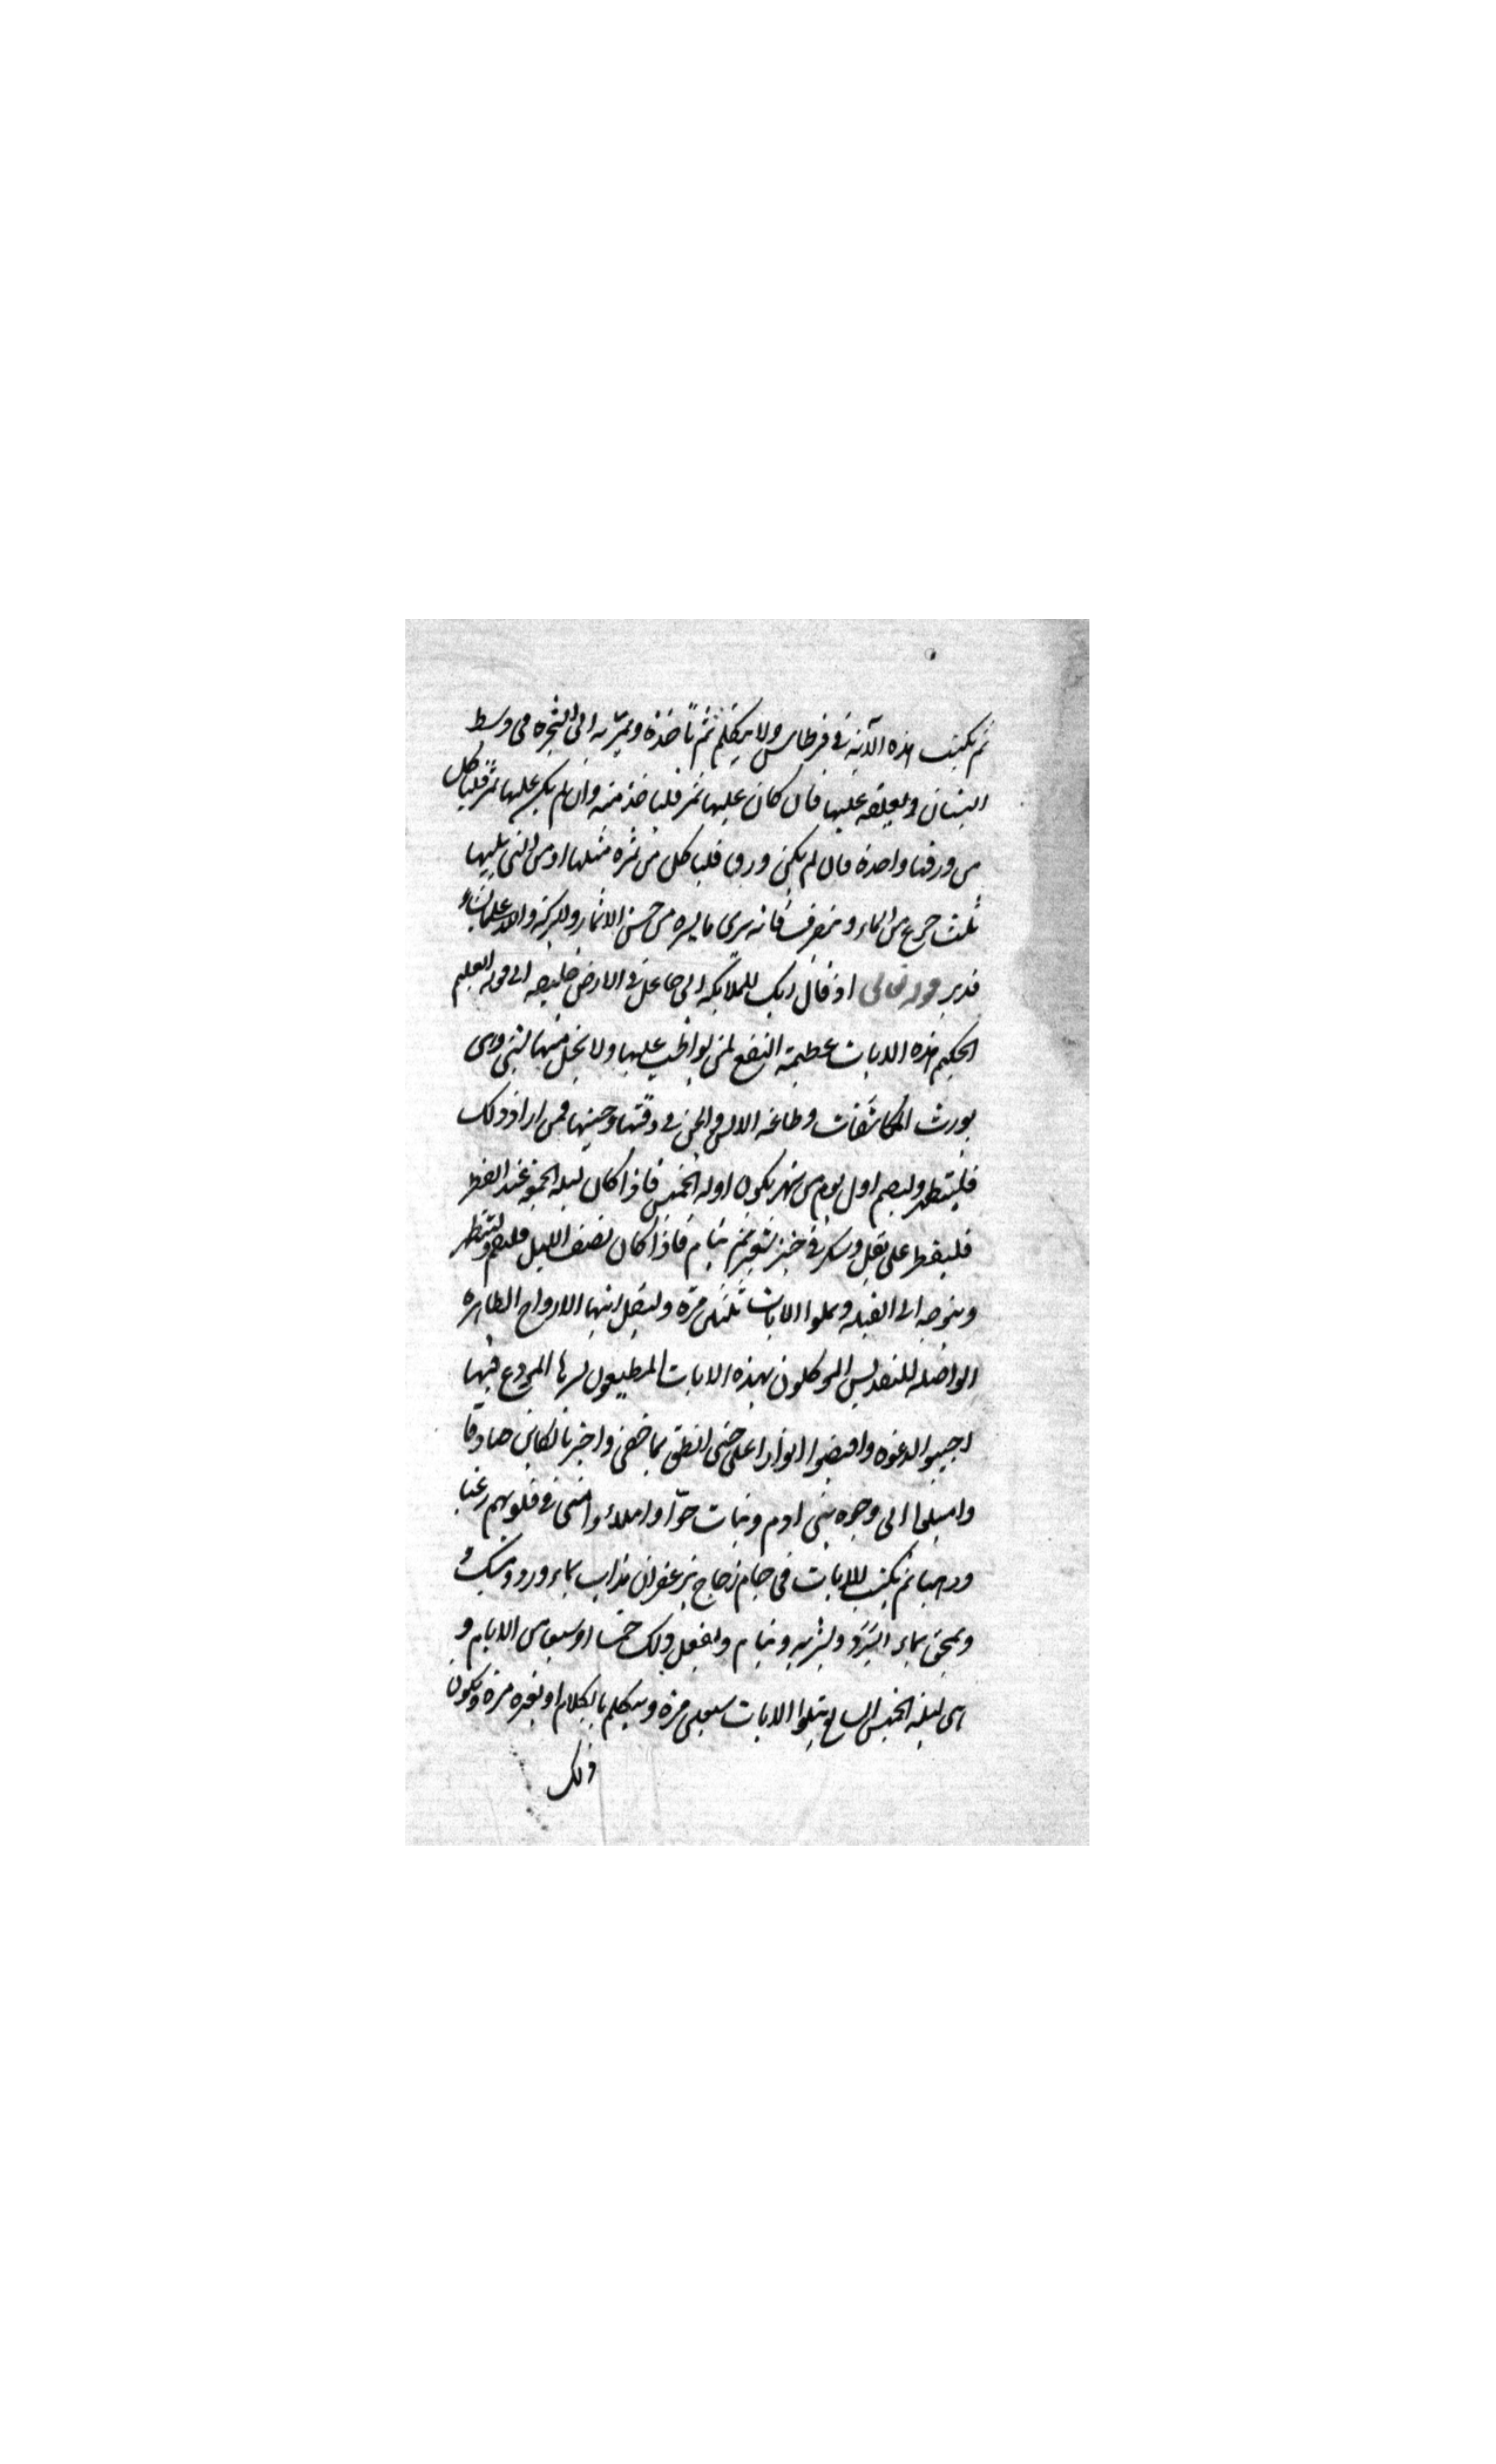 ثم يكتب هذه الآية في قرطاس ولا يتكلم ثم تأخذه ويمر به الى الشجرة في وسط
البستان ويعلقه عليها فان كان عليها ثمر فليأخذ منه وان لم يكن عليها ثمر فلياكل
من ورقها واحدة فان لم يكن ورق فلياكل من ثمرة مثلها او من التي يليها
ثلث جرع من الماء وينصرف فانه يرى ما يسره من حسن الاثمار والبركة والله على ما يشاء
قدير قوله تعالى اذ قال ربك للملائكة انى جاعل في الارض خليفة الى قوله العليم
الحكيم هذه الايات عظيمة النفع لمن يواظب عليها ولا يخل منها شي وهى
يورث المكاشفات وطاعة الانس والجن في وقتها وحينها فمن اراد ذلك
فليتطهر وليصم اول يوم من شهر يكون اوله الخميس فاذا كان ليلة الجمعة عند الفطر
فليفطر على بقل وسكر في خبز شعير ثم ينام فاذا كان نصف الليل فليقم وليتطهر
ويتوجه الى القبلة ويتلوا الايات ثلثين مرة وليقل ايتها الارواح الطاهرة
للتقديس الموكلون بهذه الايات المطيعون لسرها المودع فيها
اجيبوا الدعوة وافيضوا انوارا على حتى انطق بما خفى واخبر بالكاين صادقا
الى وجوه بنى ادم وبنات حوا في قلوبهم رغبا
ورهبا ثم يكتب الايات في جام زجاج بزعفران مذاب بماء ورد ومسك
ويمحى بماء البرد ويشربه وينام ويفعل ذلك خمسا او سبعا من الايام و
في ليلة الخميس السابع يتلوا الايات سبعين مرة ويتكلم بالكلام ويكون
ذلك